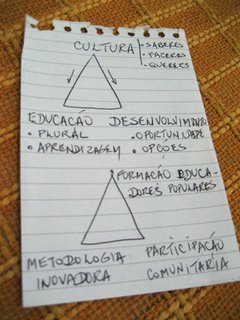 CULTURA
• SABERES
• FAZERES
• QUERERES
EDUCAÇÃO
• PLURAL
• APRENDIZAGEM
DESENVOLVIMENTO
• OPORTUNIDADE
• OPÇÕES
FORMAÇÃO EDUCA-
DORES POPULARES
METODOLOGIA
INOVADORA
PARTICIPAÇÃO
COMUNITARIA